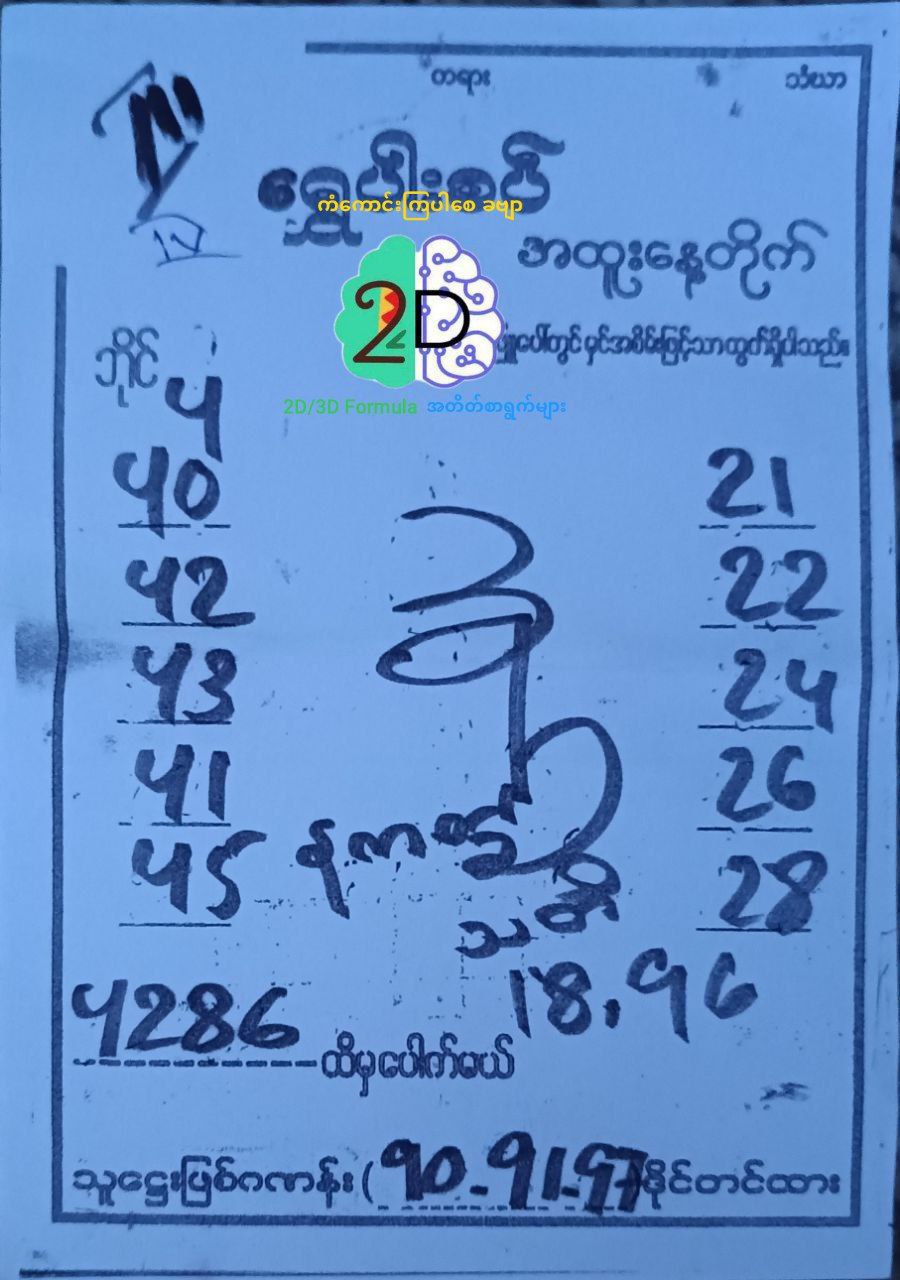 တရား သံဃာ
ရွှေပါးစပ်
ကံကောင်းကြပါစေ ခဗျာ
အထူးနေ့တိုက်
2D
ဖြူပေါ်တွင် မှင်အစိမ်းဖြင့်သာထွက်ရှိပါသည်။
2D/3D Formula အတိတ်စာရွက်များ
ဘိုင်
4
40 21
42 22
43 24
41 26
45 28
18, 96
4286 ထိမှပေါက်မယ်
သူဌေးဖြစ်ဂဏန်း ( 90 - 91 - 97 ) ခိုင်တင်ထား